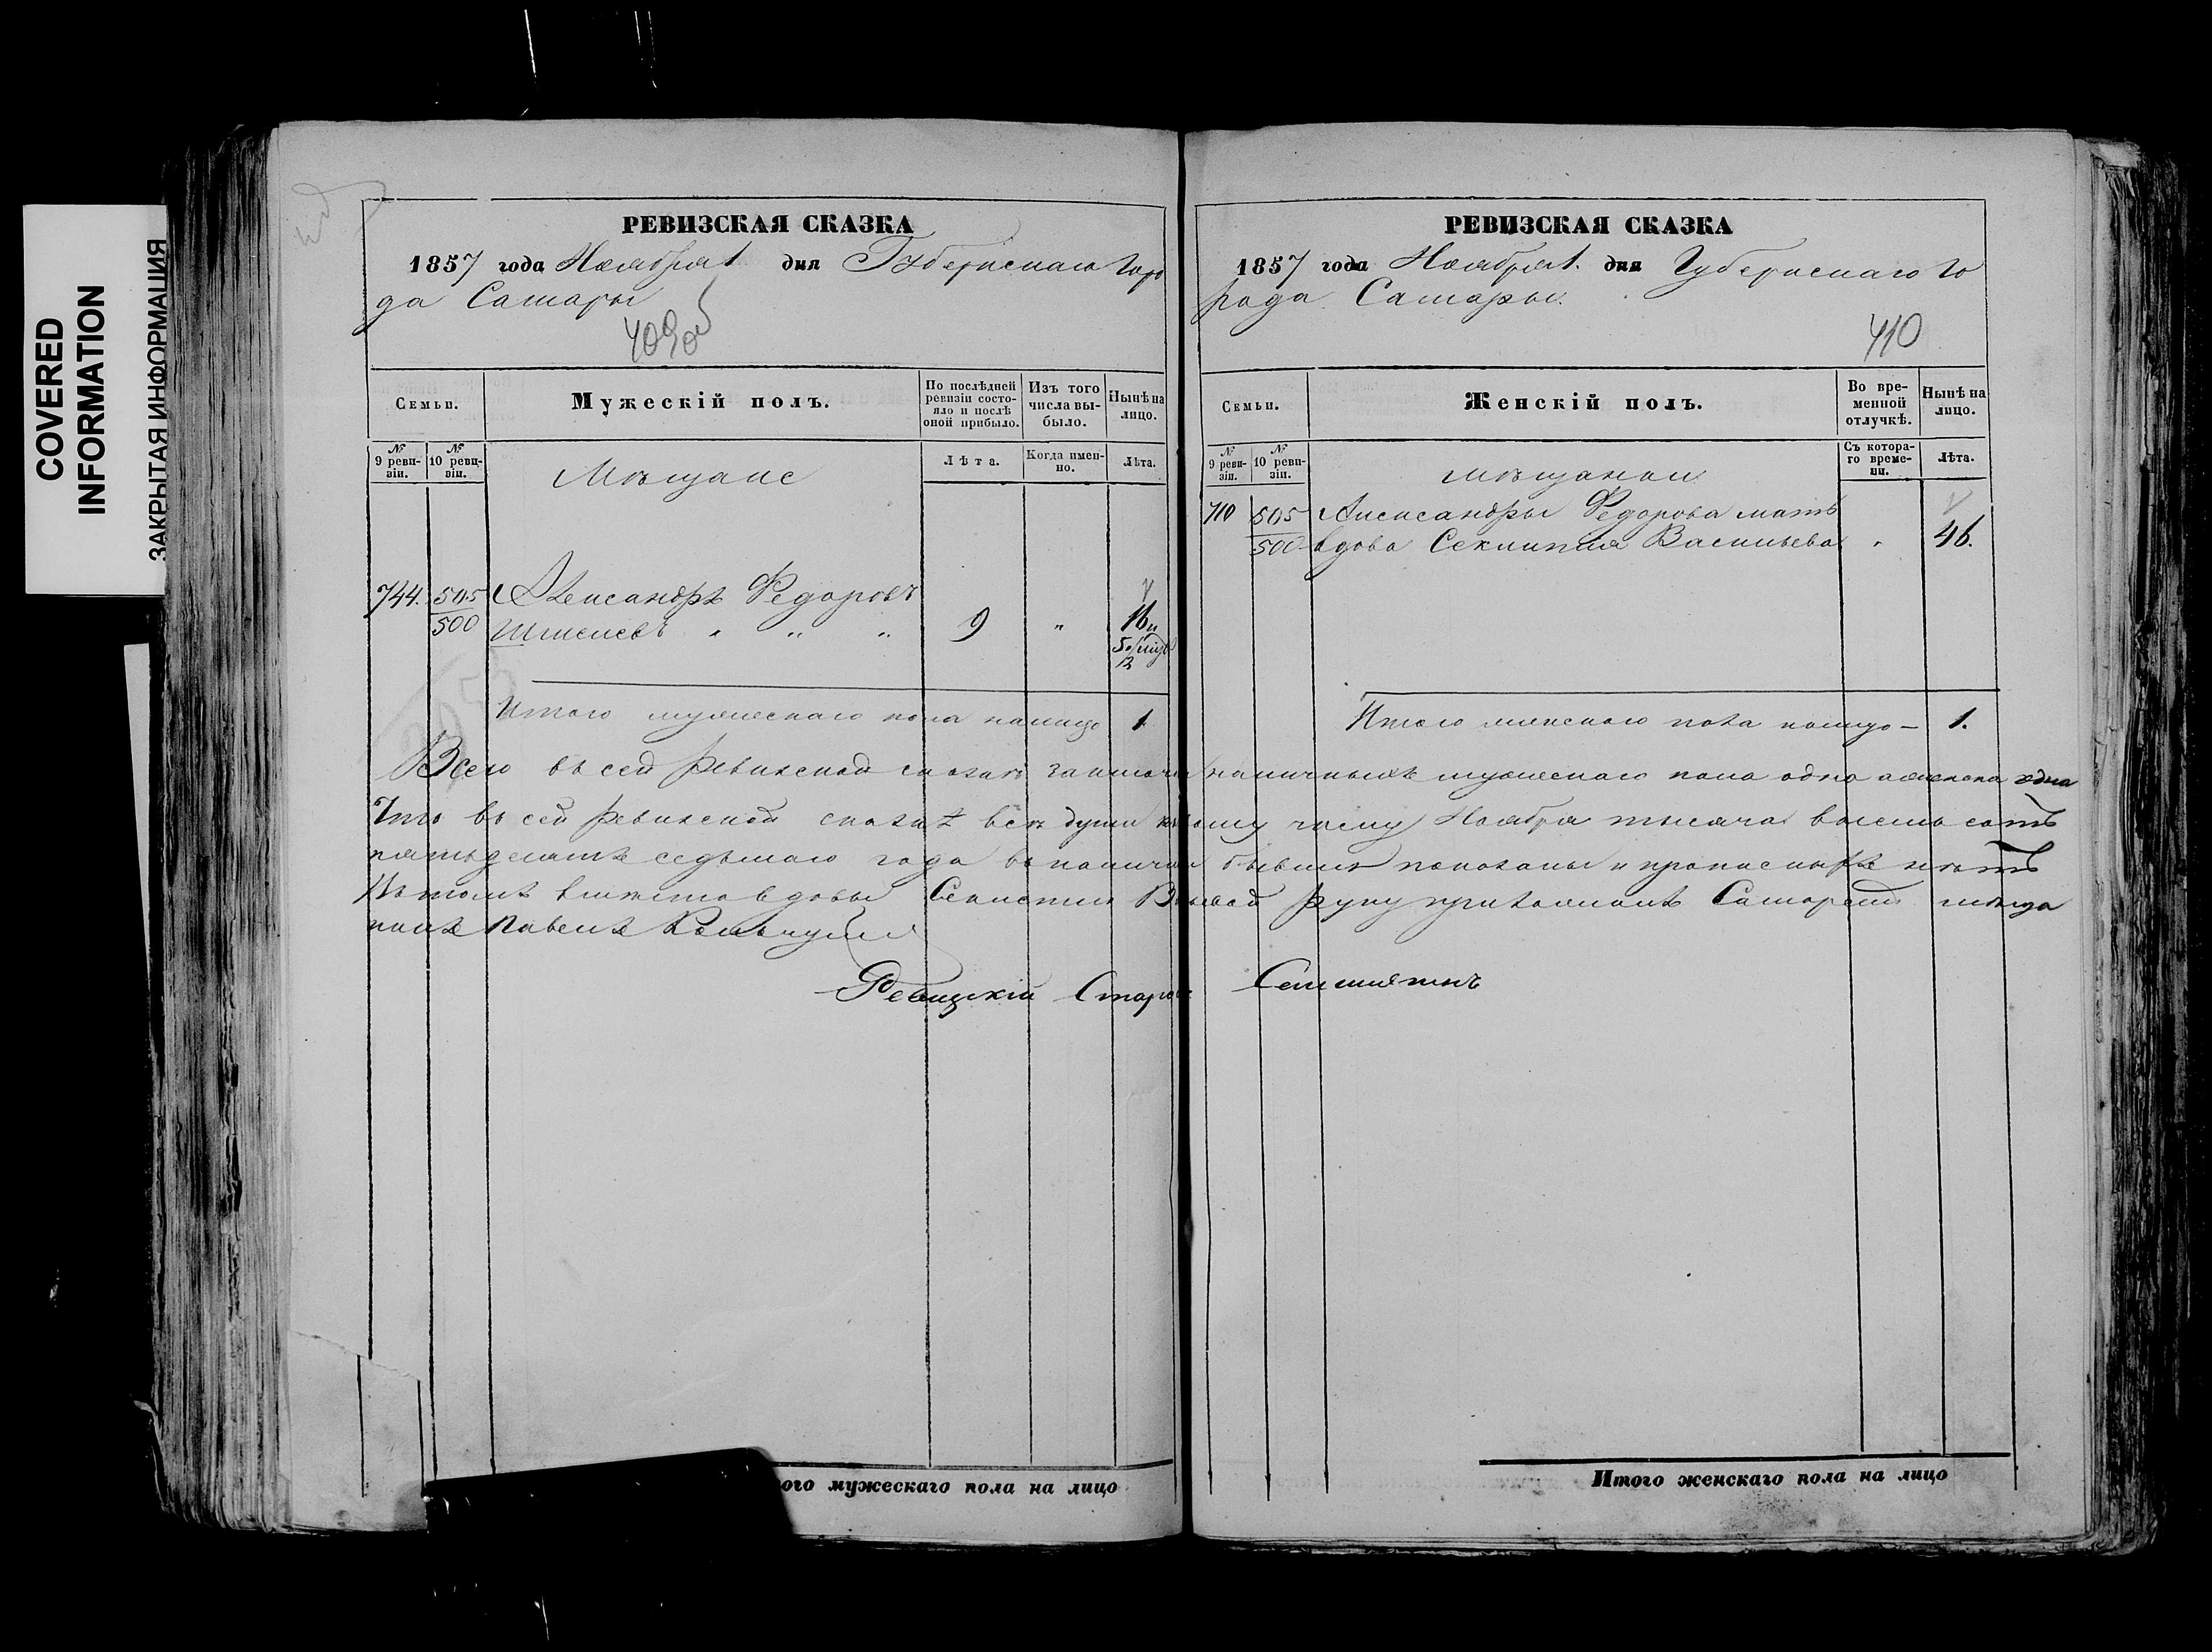 COVERED
INFORMATION
ЗАКРЫТАЯ ИНФОРМАЦИЯ
РЕВИЗСКАЯ СКАЗКА
1857 года Ноября 1 дня Губернскаго горо
да Самары
409об
Семьи.
Мужескій полъ.
По послѣдней ревизіи состояло и послѣ оной прибыло.
Изъ того числа выбыло.
Нынѣ на лицо.
№ 9 ревизіи.
№ 10 ревизіи.
Мѣщане
Лѣта.
Когда именно.
Лѣта.
744. 505 Александръ Федоровъ
500 9 " 16
Итого мужескаго пола налицо 1
РЕВИЗСКАЯ СКАЗКА
1857 года Ноября 1. дня Губернскаго го
рода Самары.
410
Семьи.
Женскій полъ.
Во временной отлучкѣ.
Нынѣ на лицо.
№ 9 ревизіи.
№ 10 ревизіи.
Мѣщанки
Съ котораго времени.
Лѣта.
710 505 Александры Федорова мать
500 вдова Васильева " 46.
Итого женскаго пола налицо – 1.
Всего въ сей ревизской сказкѣ наличныхъ мужескаго пола одна а женска одна
Что въ сей ревизской сказкѣ всѣ души къ 1 Ноября тысяча восемь сотъ
пятьдесятъ седьмаго года въ наличіи бывшія показаны и прописныхъ нѣтъ
Въ томъ вмѣсто вдовы руку приложилъ Самарскій мѣща
нинъ Павелъ
Ревизскій Старос
ого мужескаго пола на лицо
Итого женскаго пола на лицо